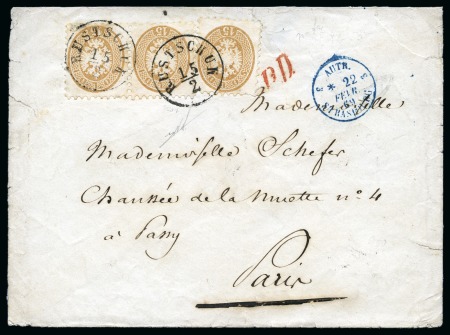 RUSTSCHUK
15
RUSTSCHUK
15
2
PD
AUTR.
22
FEVR
69
STRASBG
Mademoiselle
Mademoiselle Schefer
Chaussée de la Muette no 4
à Passy
Paris